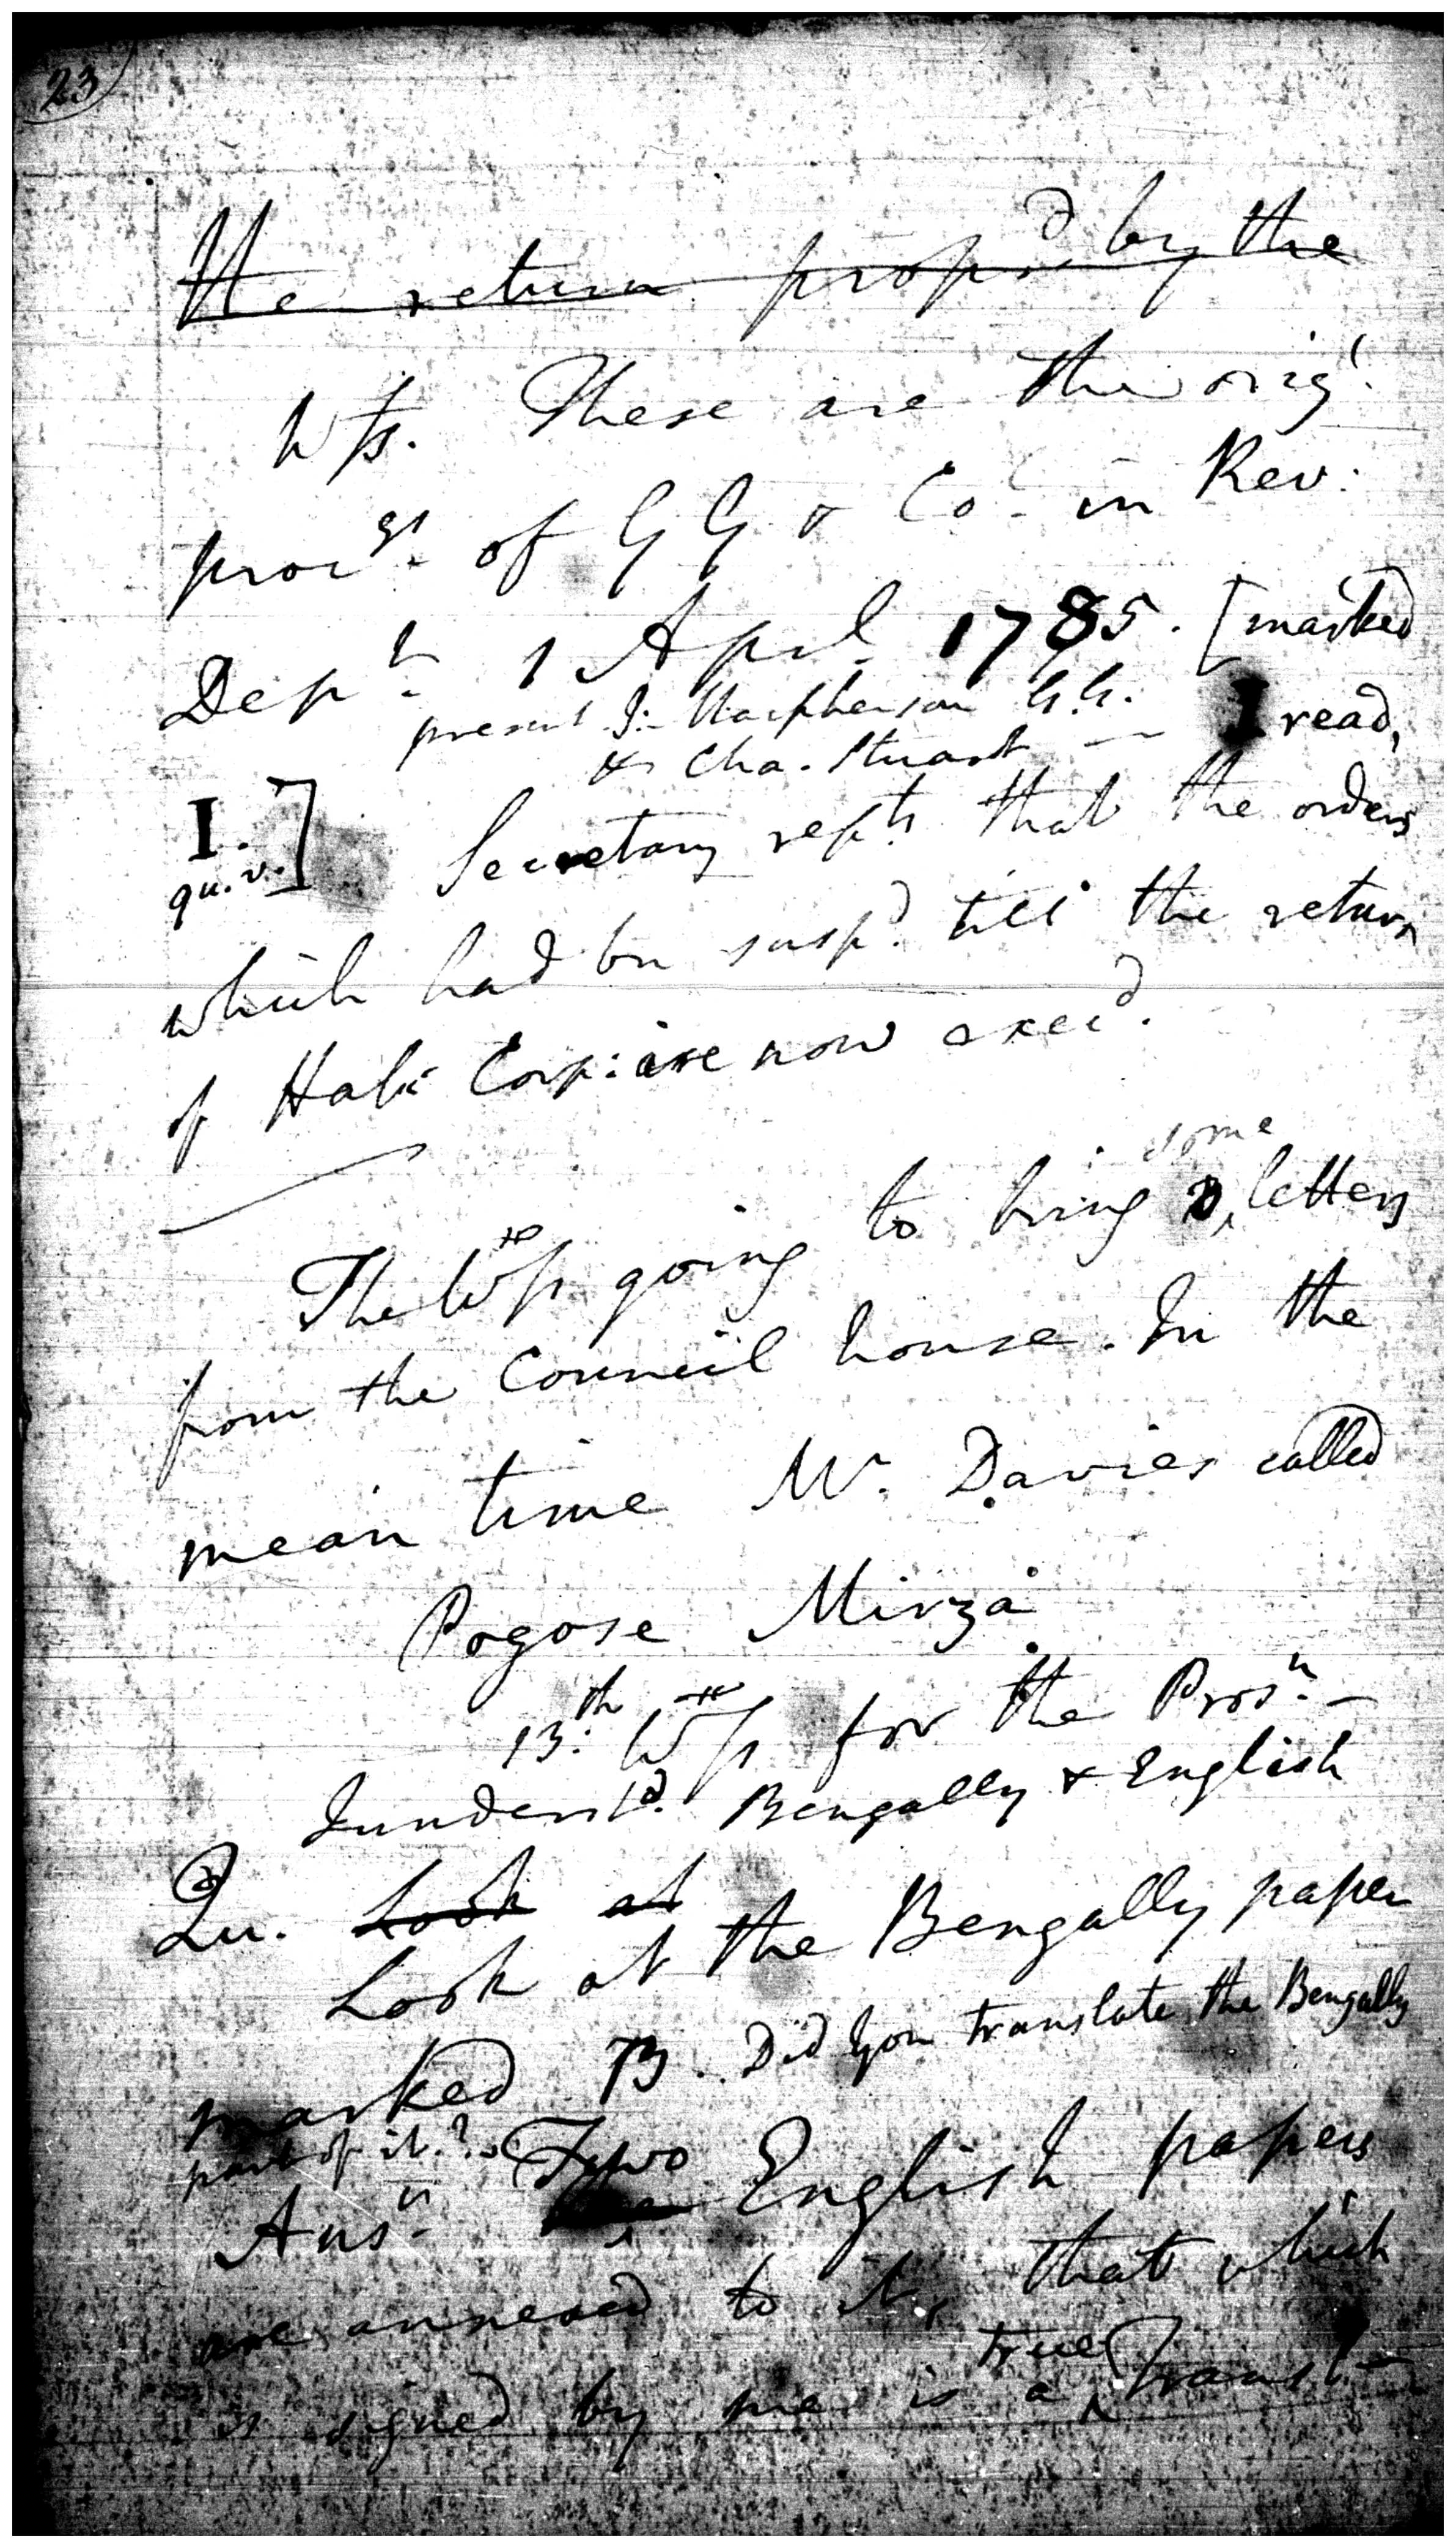 23
He return propd by the
Wts. These are the origl.
procgs. of GG & Col. in Rev:
Dept. 1 April 1785. [marked
present J. Macpherson G.G.
& Cha. Stuart — I read,
I.
qu. v.] Secretary repts. that the orders
which had bn suspd. till the return
of Half Corp: are now execd.
some
The Wss going to bring letters
from the Council house. In the
mean time Mr. Davies called
Pogose Mirza
13th. Wss for the Prosn. —
I underst.d Bengally & English
Qu. Look at
Look at the Bengally paper
marked B. Did you translate the Bengally
part of it.?
Ansr. Two English papers
are annexed to it, that which
is signed by me is a true Transl.